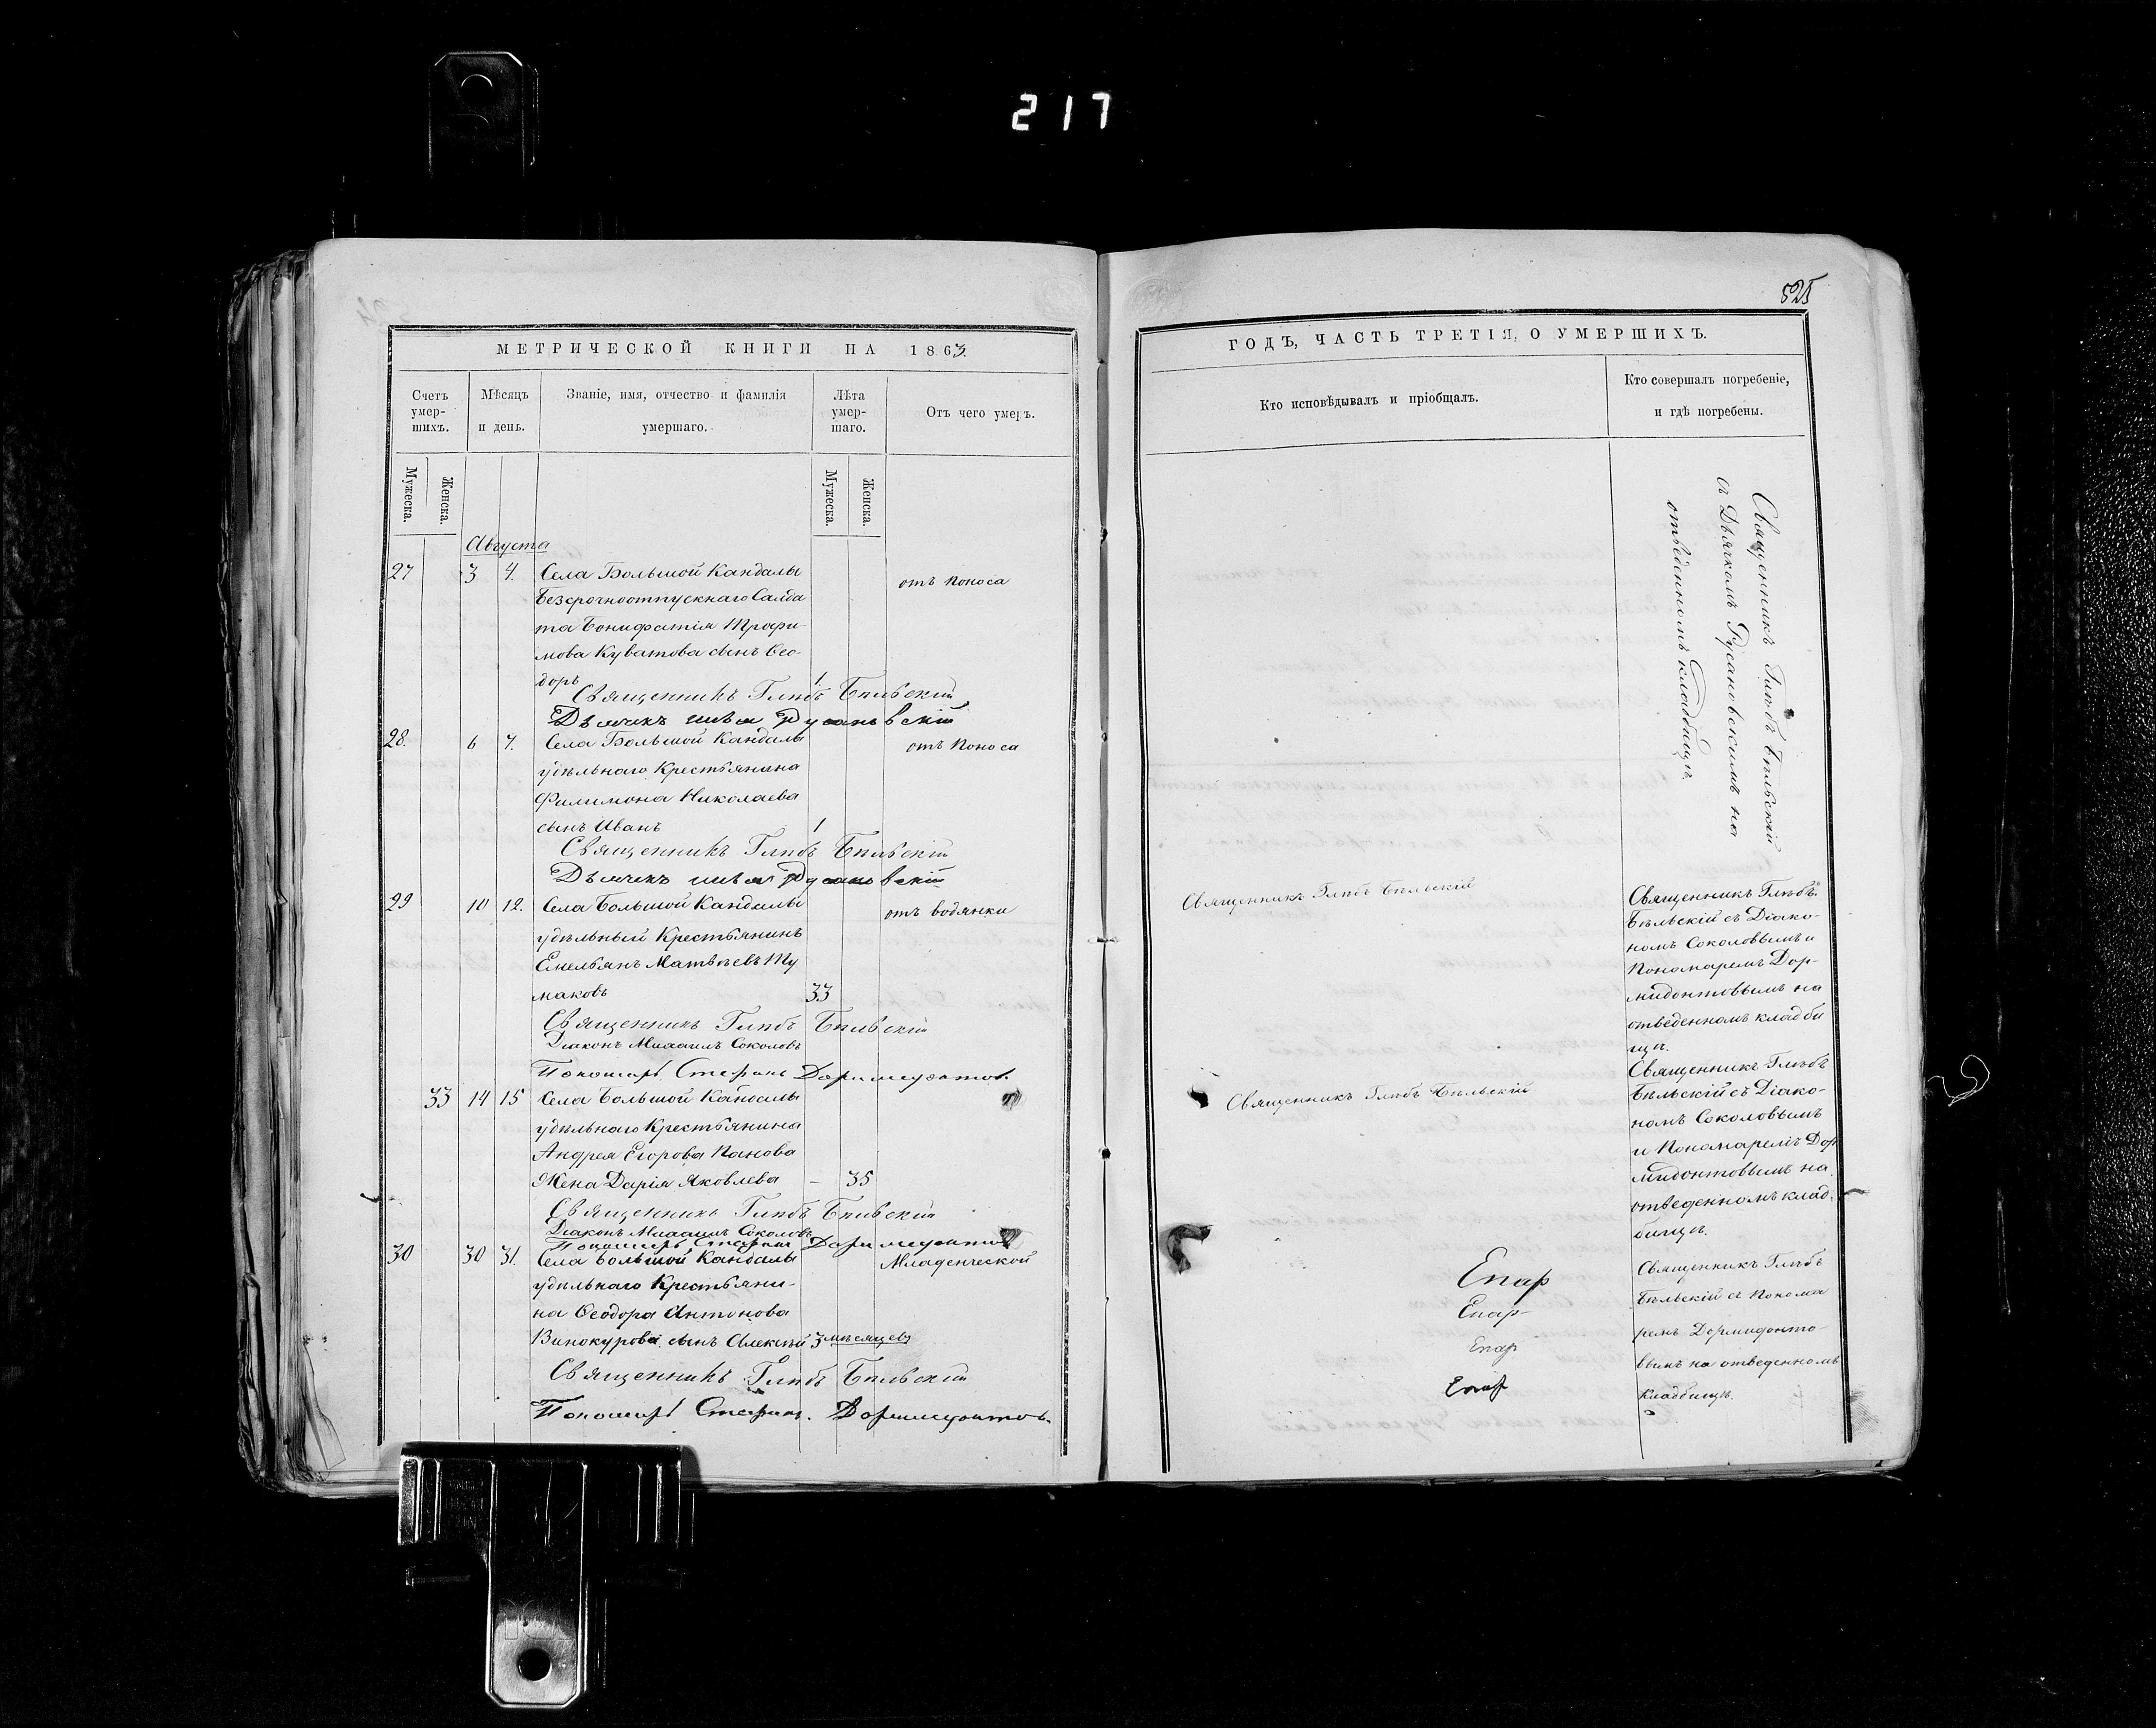 217
МЕТРИЧЕСКОЙ КНИГИ НА 1863.
Счетъ умер-шихъ.
Мѣсяцъ и день.
Званіе, имя, отчество и фамилія умершаго.
Лѣта умер-шаго.
Отъ чего умеръ.
Мужеска.
Женска.
Мужеска.
Женска.
Августа
27 3 4. Села Большой Кандалы отъ поноса
Безсрочноотпускнаго Салда-
та Бонифатія Трофи-
мова Куватова сынъ Ѳео-
доръ 1
Священникъ Глѣбъ Бѣльскій
Дьячекъ Русановскій
28. 6 7. Села Большой Кандалы отъ поноса
удѣльнаго Крестьянина
Филимона Николаева
сынъ Иванъ 1
Священникъ Глѣбъ Бѣльскій
Дьячекъ Русановскій
29 10 12. Села Большой Кандалы отъ водянки
удѣльный Крестьянинъ
Емельянъ Матвѣевъ Ту
маковъ 33
Священникъ Глѣбъ Бѣльскій
Діаконъ Михаилъ Соколовъ
Пономарь Стефанъ Дормидонтов.
33 14 15 Села Большой Кандалы
удѣльнаго Крестьянина
Андрея Егорова Панова
Жена Дарія Яковлева – 35
Священникъ Глѣбъ Бѣльскій
Діаконъ Михаилъ Соколовъ
Пономарь Стефанъ Дормидонтов
30 30 31. Села Большой Кандалы Младенческой
удѣльнаго Крестьяни-
на Ѳеодора Антонова
Винокурова сынъ Алексѣй 3 мѣсяцевъ
Священникъ Глѣбъ Бѣльскій
Пономарь Стефанъ Дормидонтов.
525
ГОДЪ, ЧАСТЬ ТРЕТІЯ, О УМЕРШИХЪ.
Кто исповѣдывалъ и пріобщалъ.
Кто совершалъ погребеніе,
и гдѣ погребены.
Священникъ Глѣбъ Бѣльскій
съ Дьячкомъ Русановскимъ на
отведенномъ кладбищѣ.
Священникъ Глѣбъ Бѣльскій
Священникъ Глѣбъ
Бѣльскій съ Діако-
номъ Соколовымъ и
Пономаремъ Дор-
мидонтовымъ на
отведенномъ кладби
щѣ.
Священникъ Глѣбъ Бѣльскій
Священникъ Глѣбъ
Бѣльскій съ Діако-
номъ Соколовымъ
и Пономаремъ Дор
мидонтовымъ на
отведенномъ клад-
бищѣ.
Епар
Епар
Епар
Епар
Священникъ Глѣбъ
Бѣльскій съ Понома
ремъ Дормидонто-
вымъ на отведенномъ
кладбищѣ.